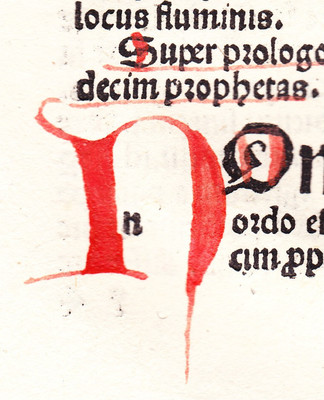 locus fluminis.
Super prologo
decim prophetas.
N On
n ordo eſ
cim ꝓp